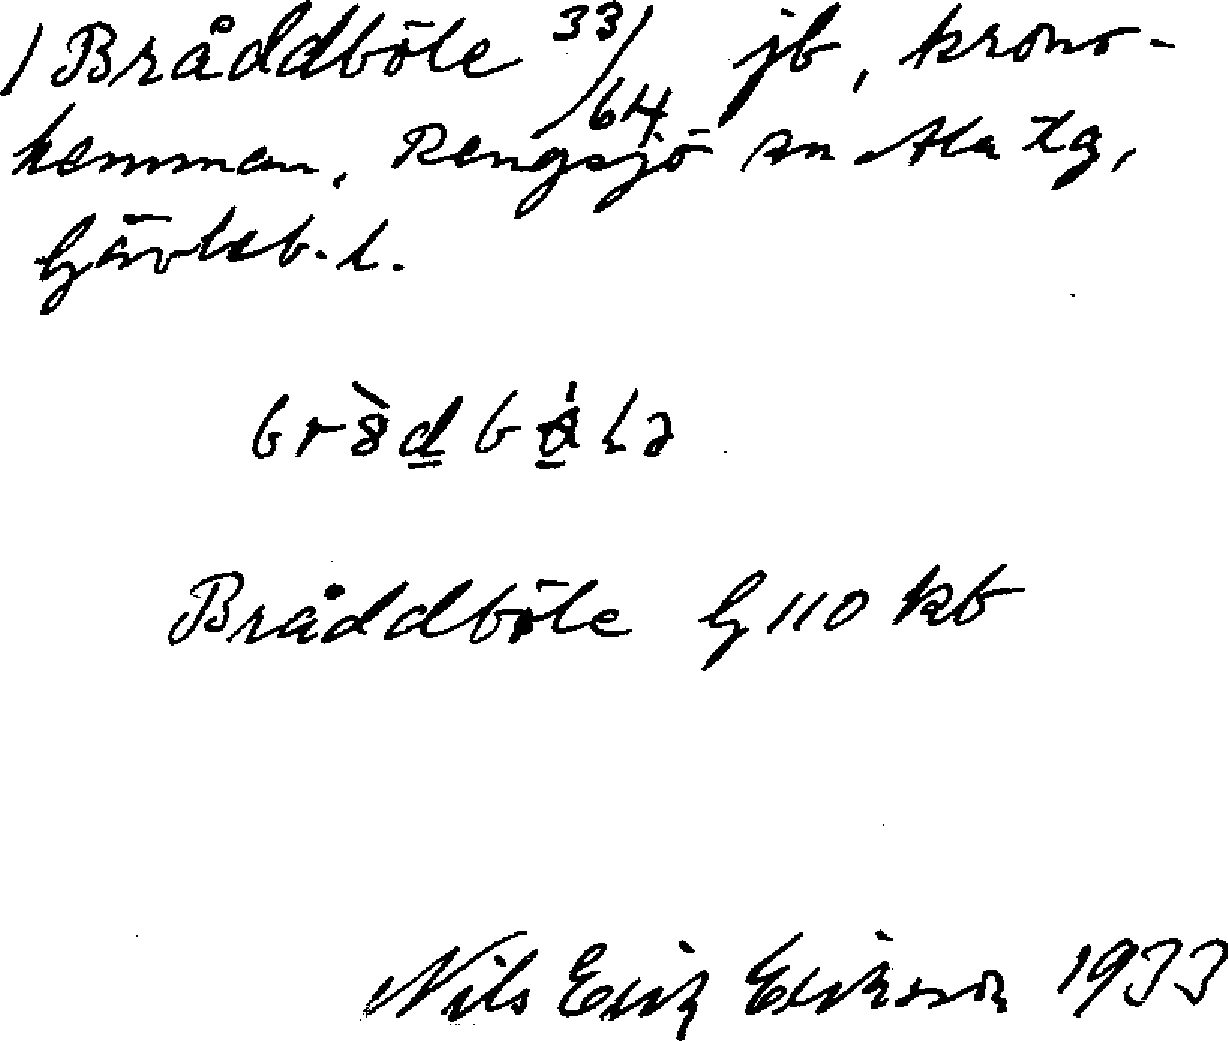 / Bråddböle 33/64 jb, krono-
hemman, Rengsjö sn Ala tg,
Gävleb. l.
Bråddböle G 110 kb
Nils Erik Eriksson 1933